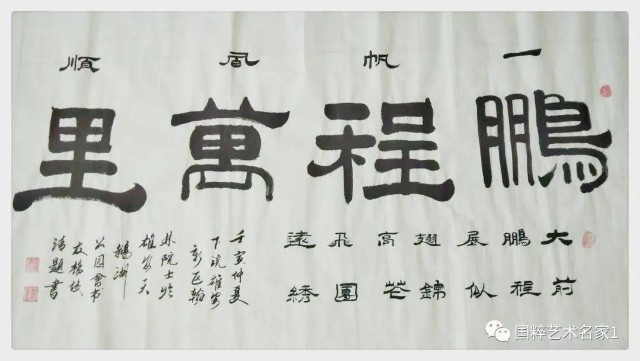 一帆風順
鵬程萬里
大鵬展翅高飛遠
前程似錦花團綉
仲夏
下浣雄安
新區翰
林院士於
雄安天
鵝湖
公園會書
友楊
清題書
国粹艺术名家1